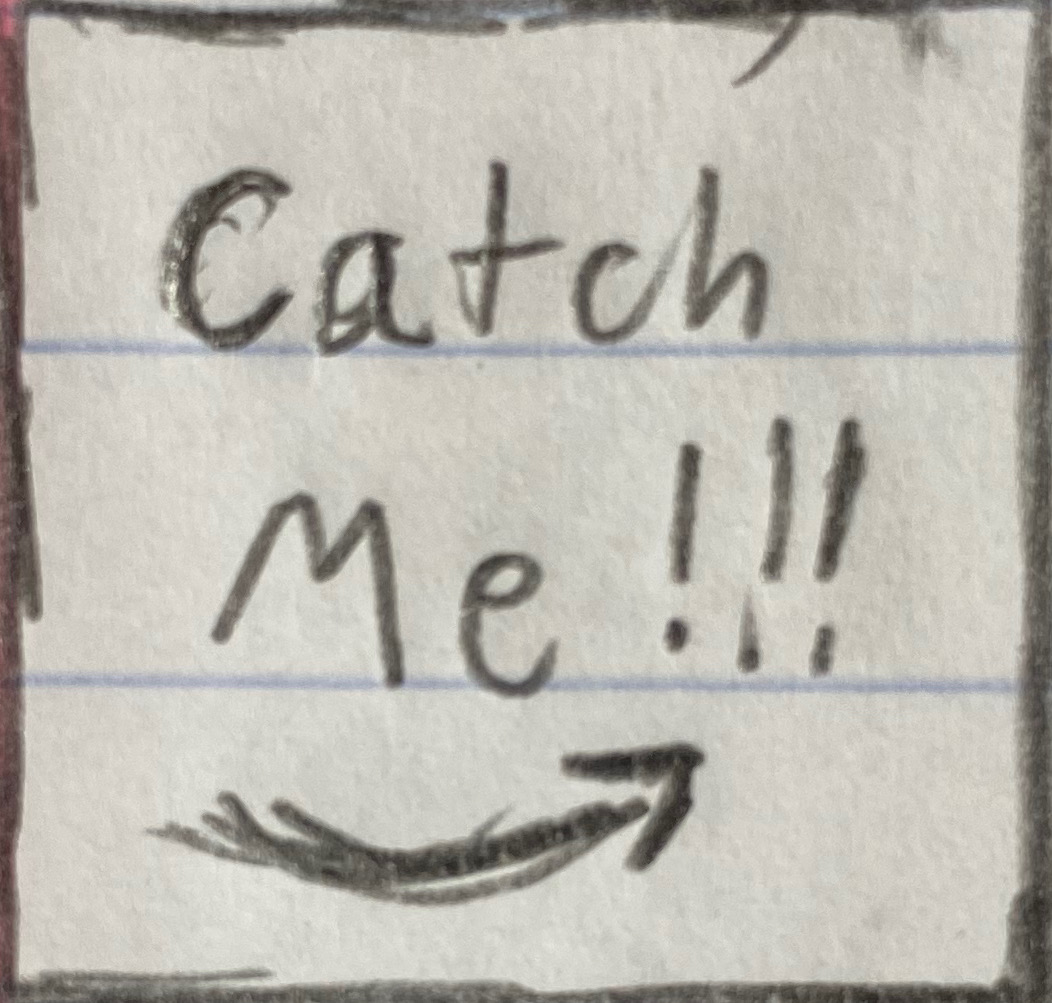 Catch
Me!!!